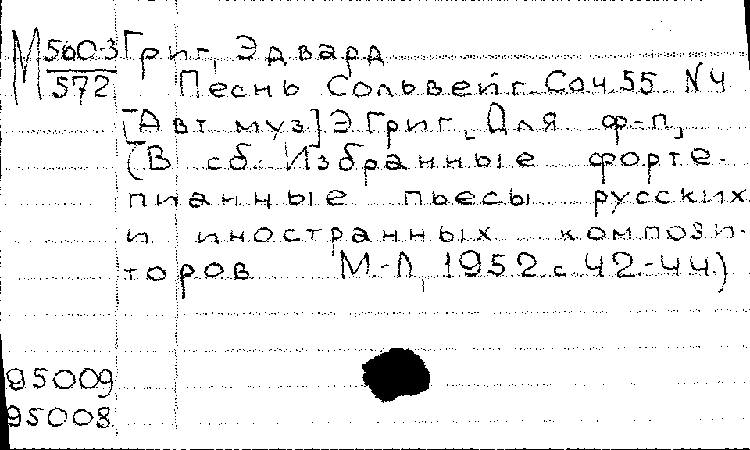 М 560-3
572
Григ, Эдвард
Песнь Сольвейг. Соч 55 N 4
[Авт муз] Э Григ, Для ф-п,
(В сб. Избранные форте-
пианные пьесы русских
и иностранных компози-
торов М-Л, 1952 с 42-44)
95009
95008